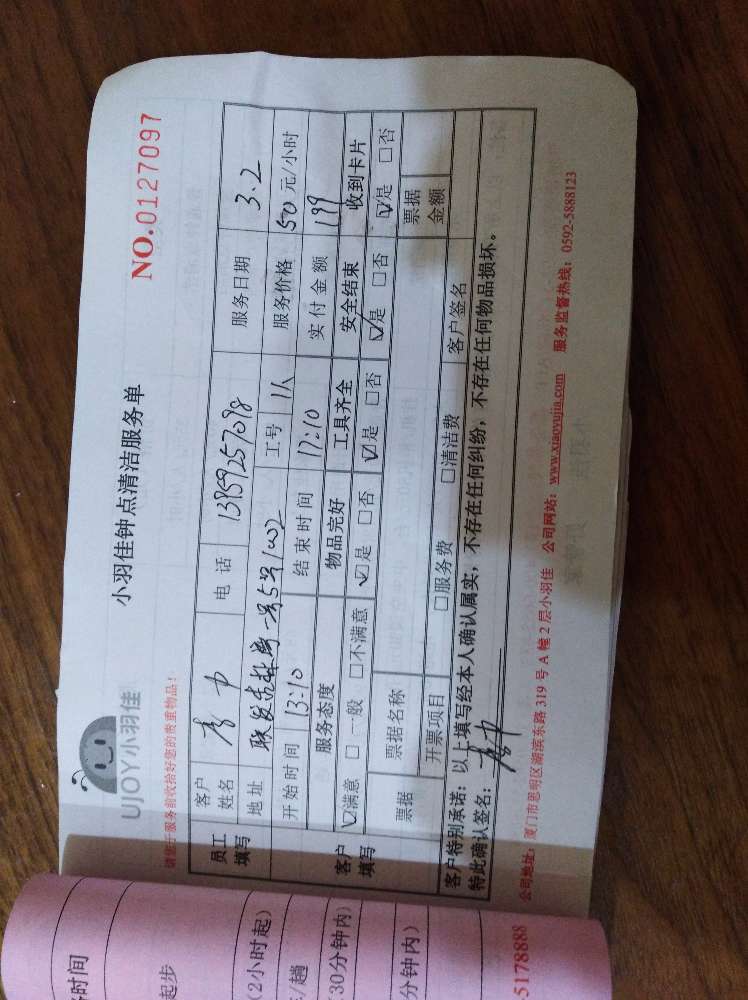 UJOY小羽佳
小羽佳钟点清洁服务单
NO.0127097
请您于服务前收拾好您的贵重物品！
员工填写
客户姓名
电话 13959257098
服务日期 3.2
地址
5号1002
工号 1人
服务价格 50元/小时
开始时间 13:10
结束时间 17:10
实付金额 199
客户填写
服务态度 物品完好 工具齐全 安全结束 收到卡片
☑满意 □一般 □不满意 ☑是 □否 ☑是 □否 ☑是 □否 ☑是 □否
票据 票据名称 票据金额
开票项目 □服务费 □清洁费 客户签名
客户特别承诺：以上填写经本人确认属实，不存在任何纠纷，不存在任何物品损坏。
特此确认签名：
公司地址：厦门市思明区湖滨东路 319 号 A 幢 2 层小羽佳 公司网站：www.xiaoyujia.com 服务监督热线：0592-5888123
时间
起步
(2小时起)
/趟
30分钟内)
分钟内)
5178888